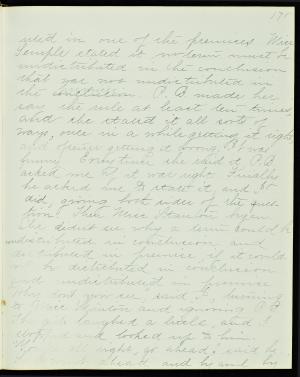 175
used in one of the premises Miss
Temple stated it no term must be
undistributed in the conclusion
that was not undistributed in
the P.B. made her
say the rule at least ten times,
and she stated it all sorts of
ways, once in a while getting it right
and oftener getting it wrong. It was
funny. Every time she said it, P.B.
asked me if it was right. Finally
he asked me to state it, and I
did, giving both sides of the ques-
tion. Then Miss Stanton began
She didn't see why a term could be
undistributed in conclusion and
distributed in premise, if it could
be distributed in conclusion
and undistributed in premise
Why don't you see, said I, turning
to Miss Stanton and ignoring P.B.
The girls laughed a little, and I
stopped and looked up to him.
all right, go ahead! said he
ahead and he and the